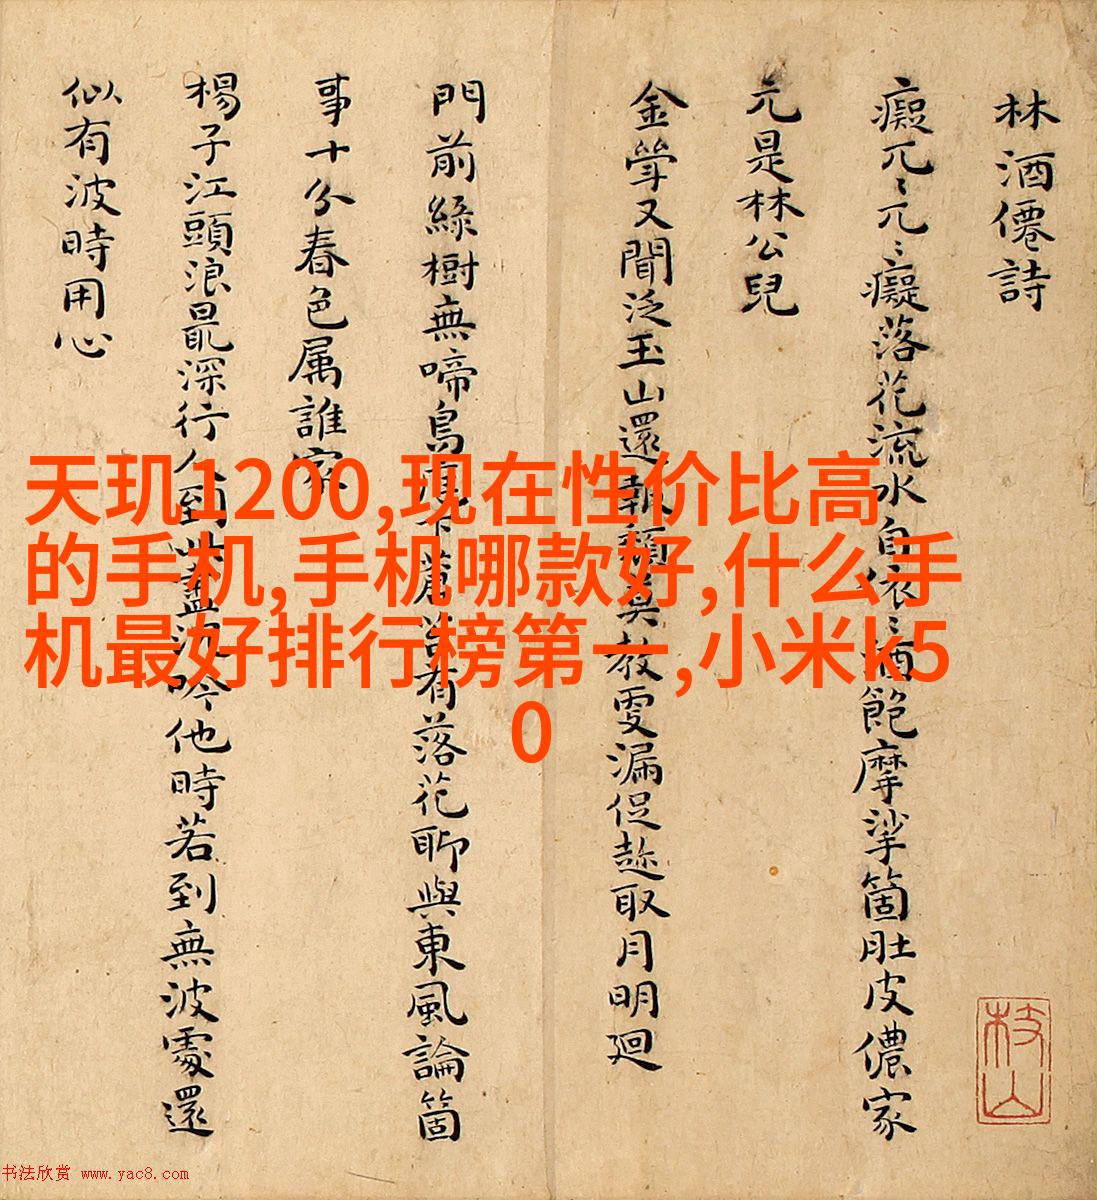 林酒僊詩
癡兀〻兀〻癡落花流水自依〻酒飽摩挲箇肚皮儂家
元是林公兒
金斝又聞泛玉山還報頽莫教雯漏促趂取月明廻
門前綠樹無啼鳥 下蒼苔有落花聊與東風論箇
事十分春色属誰家
楊子江頭浪最深行人到此盡沉吟他時若到無波處還
似有波時用心
枝山
天玑1200,现在性价比高
的手机,手机哪款好,什么手
机最好排行榜第一,小米k5
0
书法欣赏 www.yac8.com